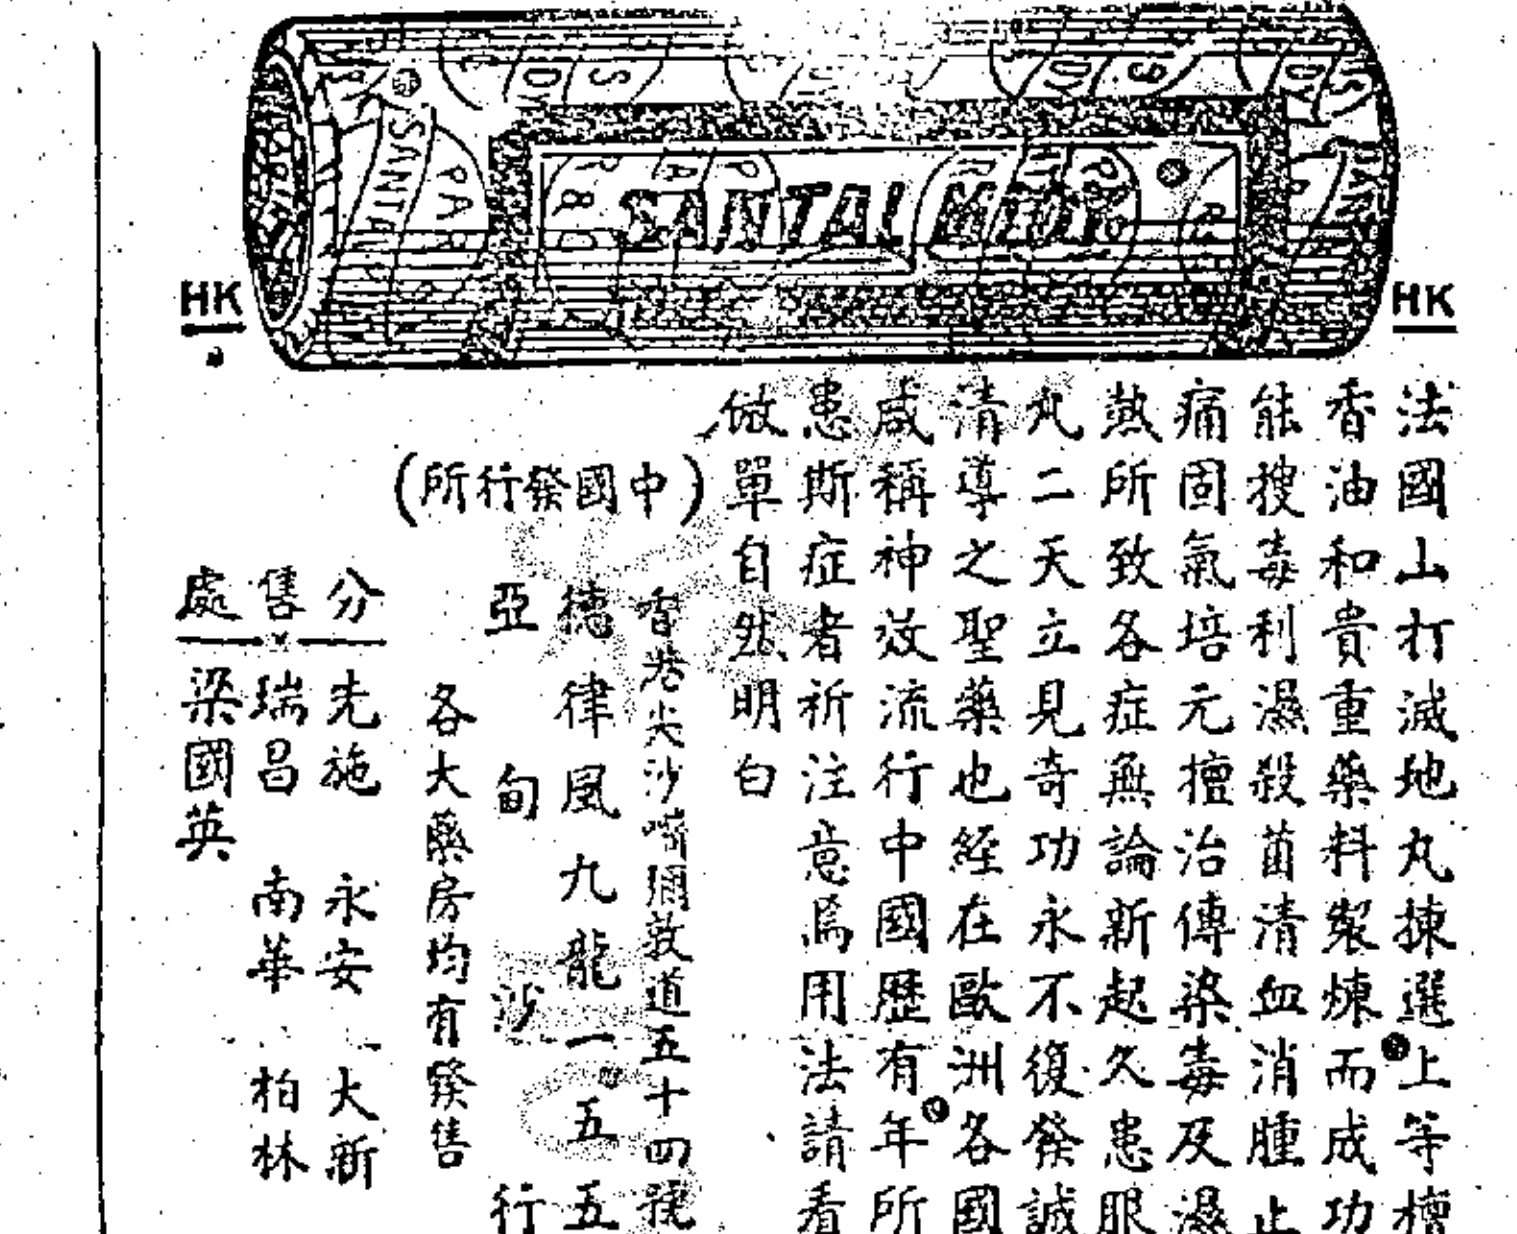 SANTAL MIDY
HK
HK
法國山打滅地丸揀選上等檀
香油和貴重藥料製煉而成功
能搜毒利濕殺菌清血消腫止
痛固氣培元擅治傳染毒及濕
熱所致各症無論新起久患服
丸二天立見奇功永不復發誠
清導之聖藥也經在歐洲各國
咸稱神效流行中國歷有年所
患斯症者祈注意焉用法請看
倣單自然明白
(中國發行所)
香港尖沙嘴彌敦道五十四號
德律風九龍一五五
亞旬沙行
各大藥房均有發售
分售處
先施 永安 大新
瑞昌 南華 柏林
梁國英